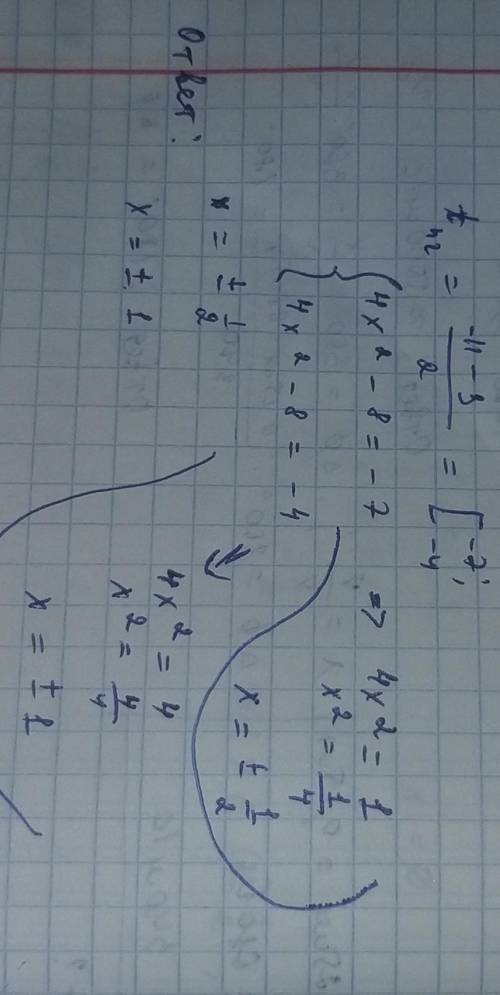 t₁,₂ = (-11 - 3)/2 = [ -7; -4
{ 4x² - 8 = -7 => 4x² = 1
4x² - 8 = -4
x² = 1/4
x = ± 1/2
4x² = 4
x² = 4/4
x = ± 1
Ответ:
x = ± 1/2
x = ± 1